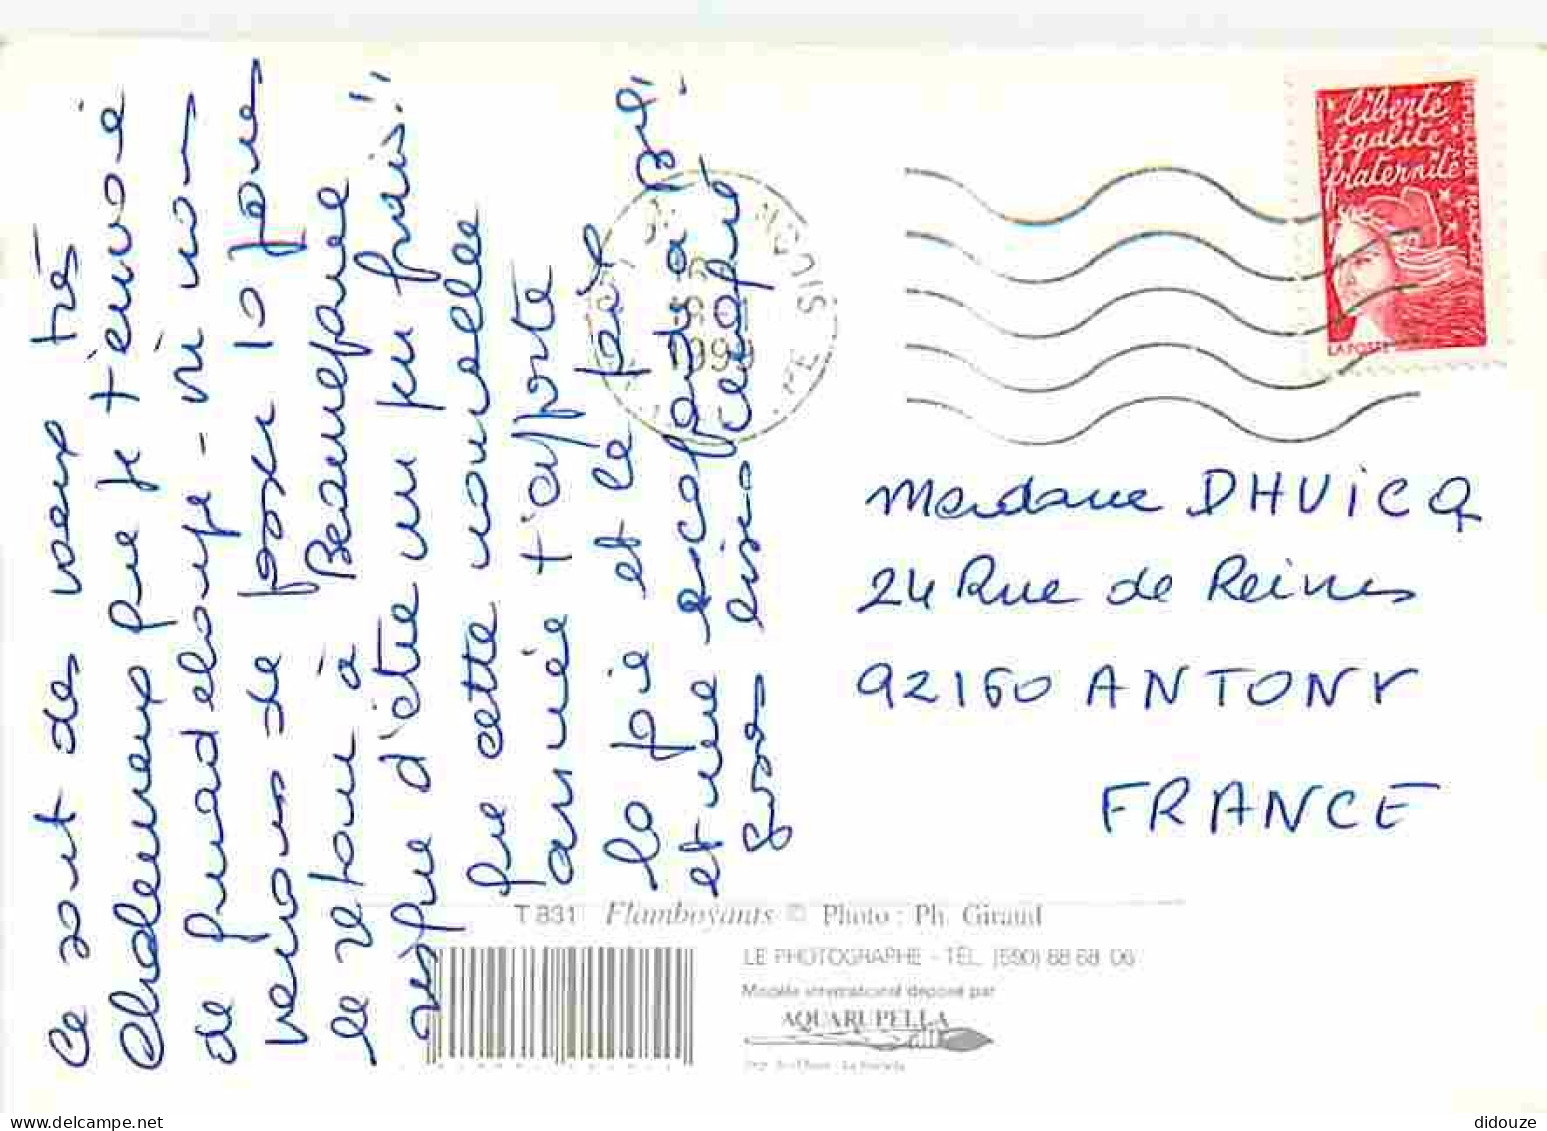 Ce sont des voeux très
chaleureux que je t'envoie
de guadeloupe - où nous
venons de passer 10 jours
le retour à Beaurepaire
risque d'être un peu frais!!
que cette nouvelle
année t'apporte
la joie et la paix
et une escapade à
Madame DHUICQ
24 Rue de Reims
92160 ANTONY
FRANCE
liberté
égalité
fraternité
LA POSTE
1999
T 831 Flamboyants © Photo : Ph. Giraud
LE PHOTOGRAPHE - TÉL. (590) 88 68 06
Modèle international déposé par
AQUARUPELLA
didouze